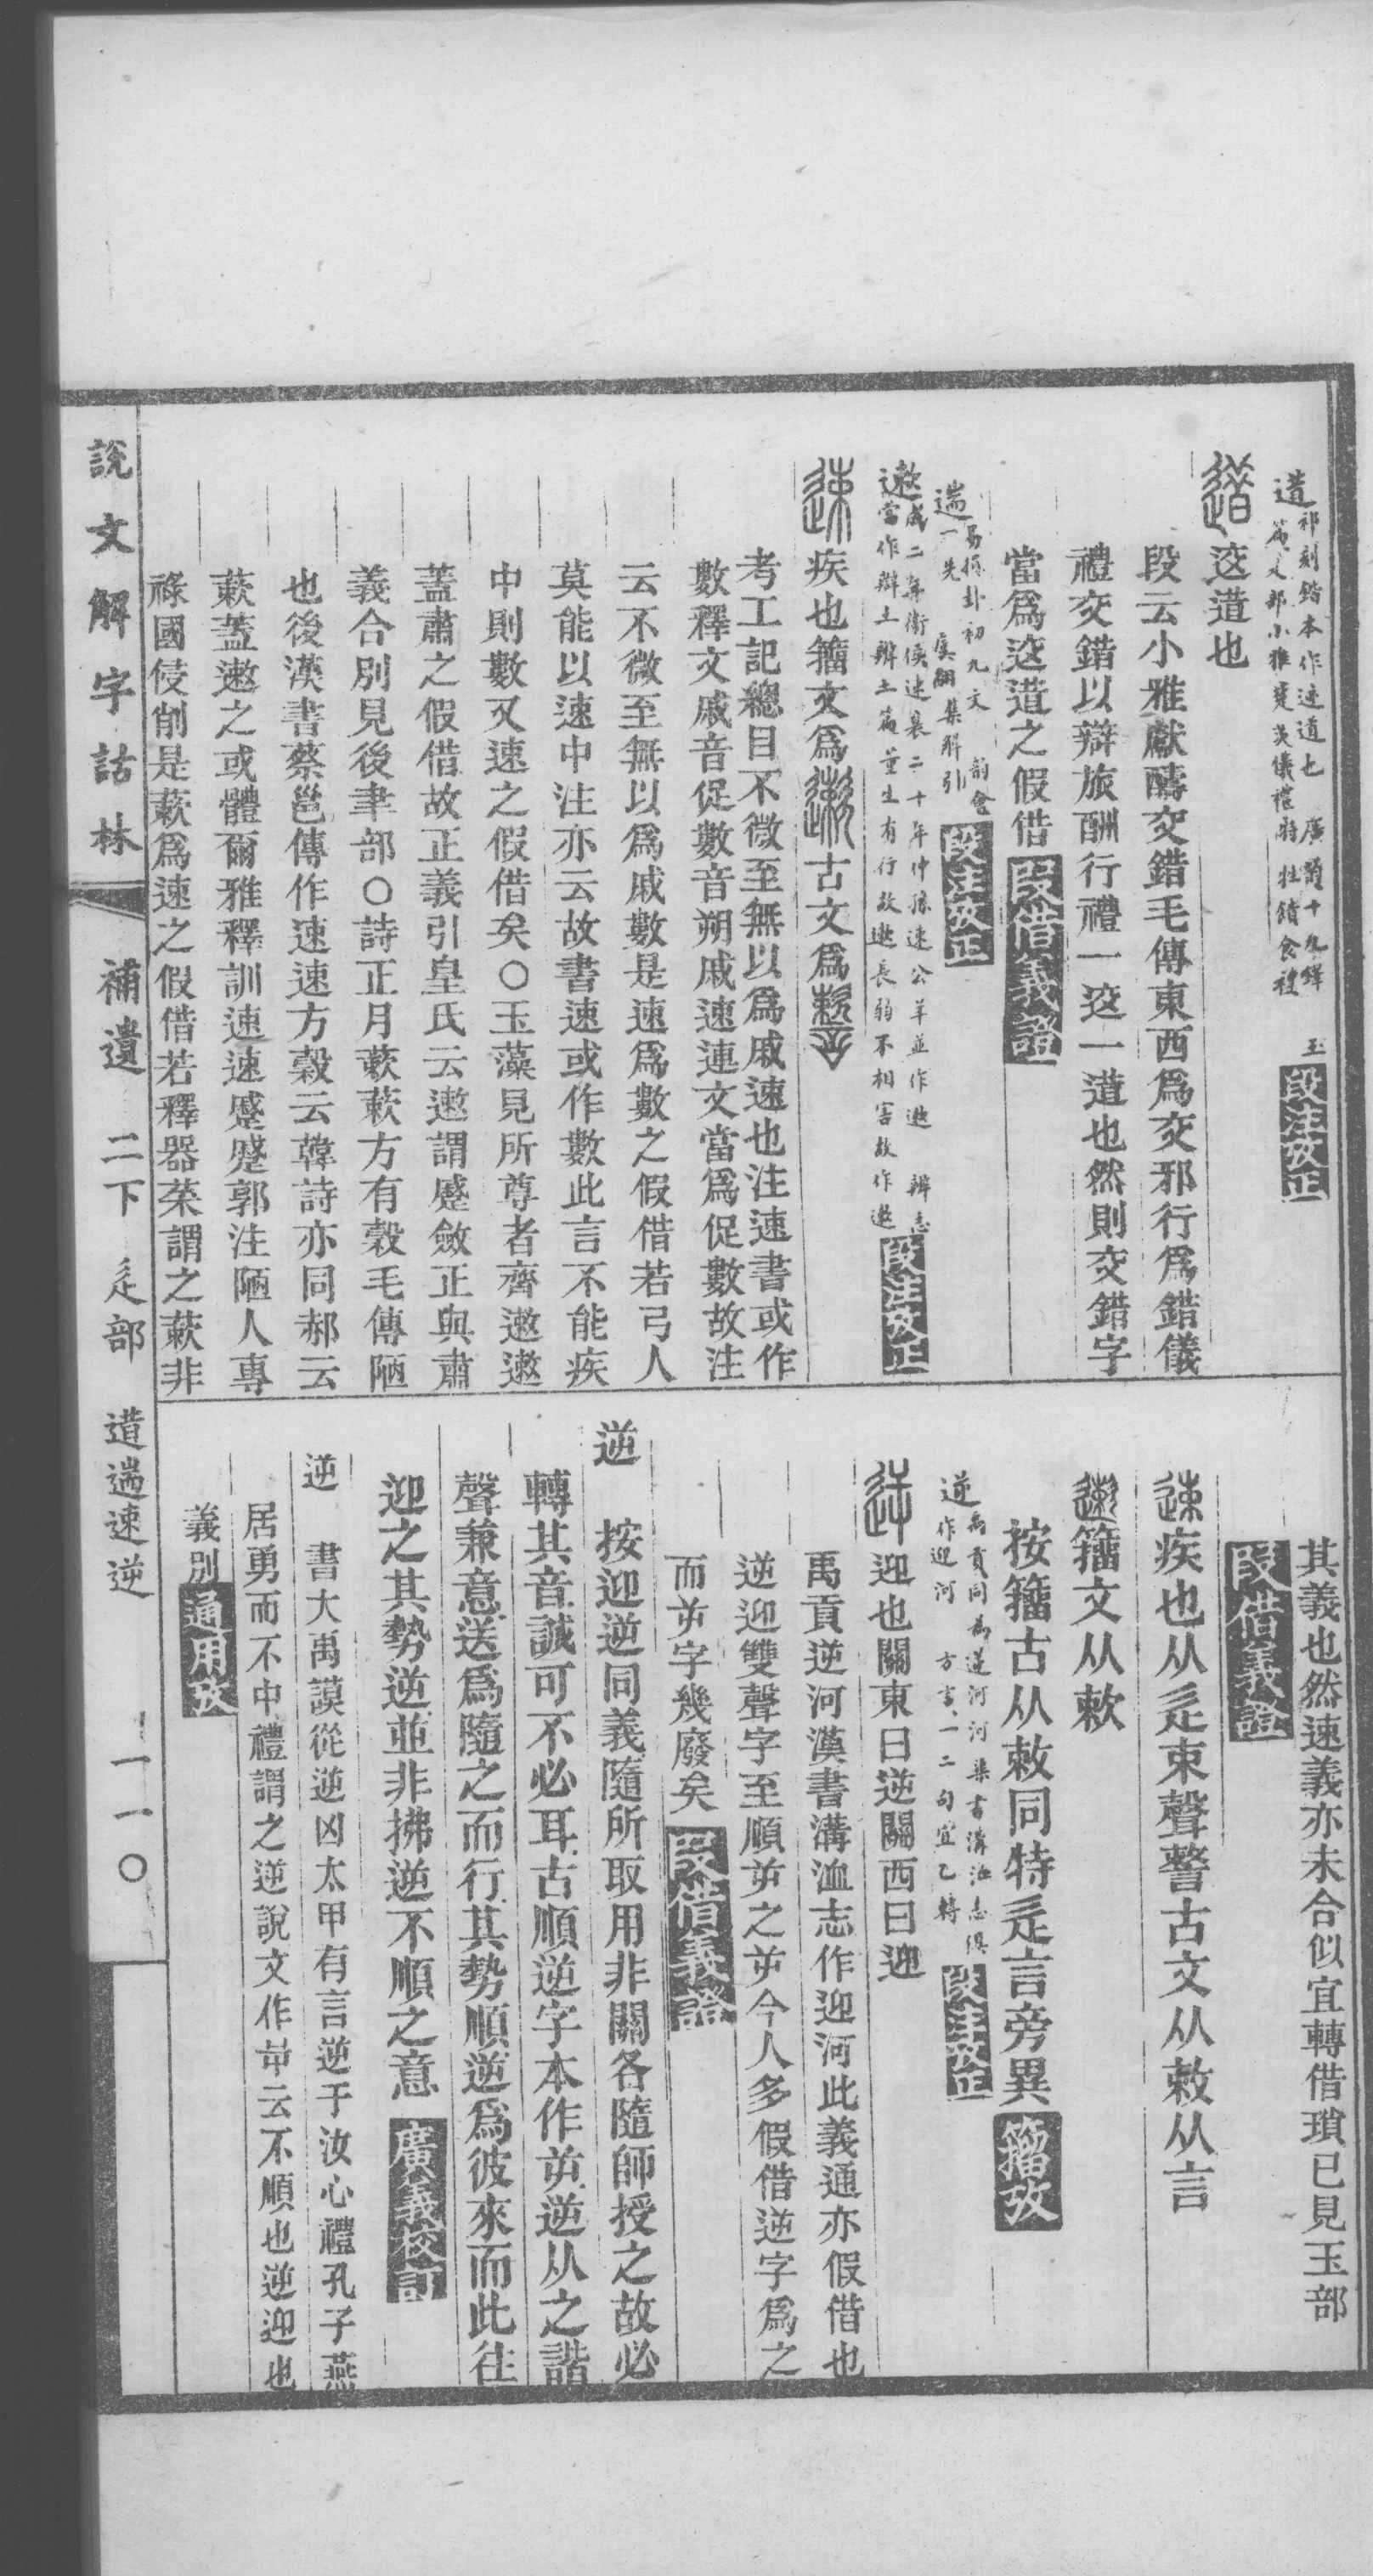 祁刻鍇本作迹道也 廣韻十九鐸 玉
篇辵部小雅楚茨儀禮特牲饋食禮 段注攷正
䢒䢐䢒也
段云小雅獻醻交錯毛傳東西爲交邪行爲錯儀
禮交錯以辯旅酬行禮一䢒一造也然則交錯字
當爲䢒造之假借 段借義證
遄 易損卦初九文 韵會
一先 虞翻集解引 段注攷正
遬 成二年衞侯速襄二十年仲孫速公羊並作遬 辨志
當作辯土辯土篇莖生有行故遬長弱不相害故作遬 段注攷正
疾也籀文爲遬古文爲
考工記總目不微至無以爲戚速也注速書或作
數釋文戚音促數音朔戚速連文當爲促數故注
云不微至無以爲戚數是速爲數之假借若弓人
莫能以速中注亦云故書速或作數此言不能疾
中則數又速之假借矣○玉藻見所尊者齊遬遬
蓋肅之假借故正義引皇氏云遬謂蹙斂正與肅
義合別見後聿部○詩正月蔌蔌方有穀毛傳陋
也後漢書蔡邕傳作速速方穀云韓詩亦同郝云
蔌蓋遬之或體爾雅釋訓速速蹙蹙郭注陋人專
祿國侵削是蔌爲速之假借若釋器菜謂之蔌非
其義也然速義亦未合似宜轉借瑣已見玉部
段借義證
速疾也从辵束聲警古文从敕从言
遬籀文从欶
按籀古从敕同特辵言旁異 籀攷
逆 禹貢同爲逆河河渠書溝洫志俱
作迎河 方言一二句宜乙轉 段注攷正
迎也關東曰逆關西曰迎
禹貢逆河漢書溝洫志作迎河此義通亦假借也
逆迎雙聲字至順屰之屰今人多假借逆字爲之
而屰字幾廢矣 段借義證
逆 按迎逆同義隨所取用非關各隨師授之故必
轉其音誠可不必耳古順逆字本作屰逆从之諧
聲兼意送爲隨之而行其勢順逆爲彼來而此往
迎之其勢逆並非拂逆不順之意 廣義校訂
逆 書大禹謨從逆凶太甲有言逆于汝心禮孔子燕
居勇而不中禮謂之逆說文作屰云不順也逆迎也
義別 通用攷
說文解字詁林 補遺 二下 辵部 造遄速逆 一一○